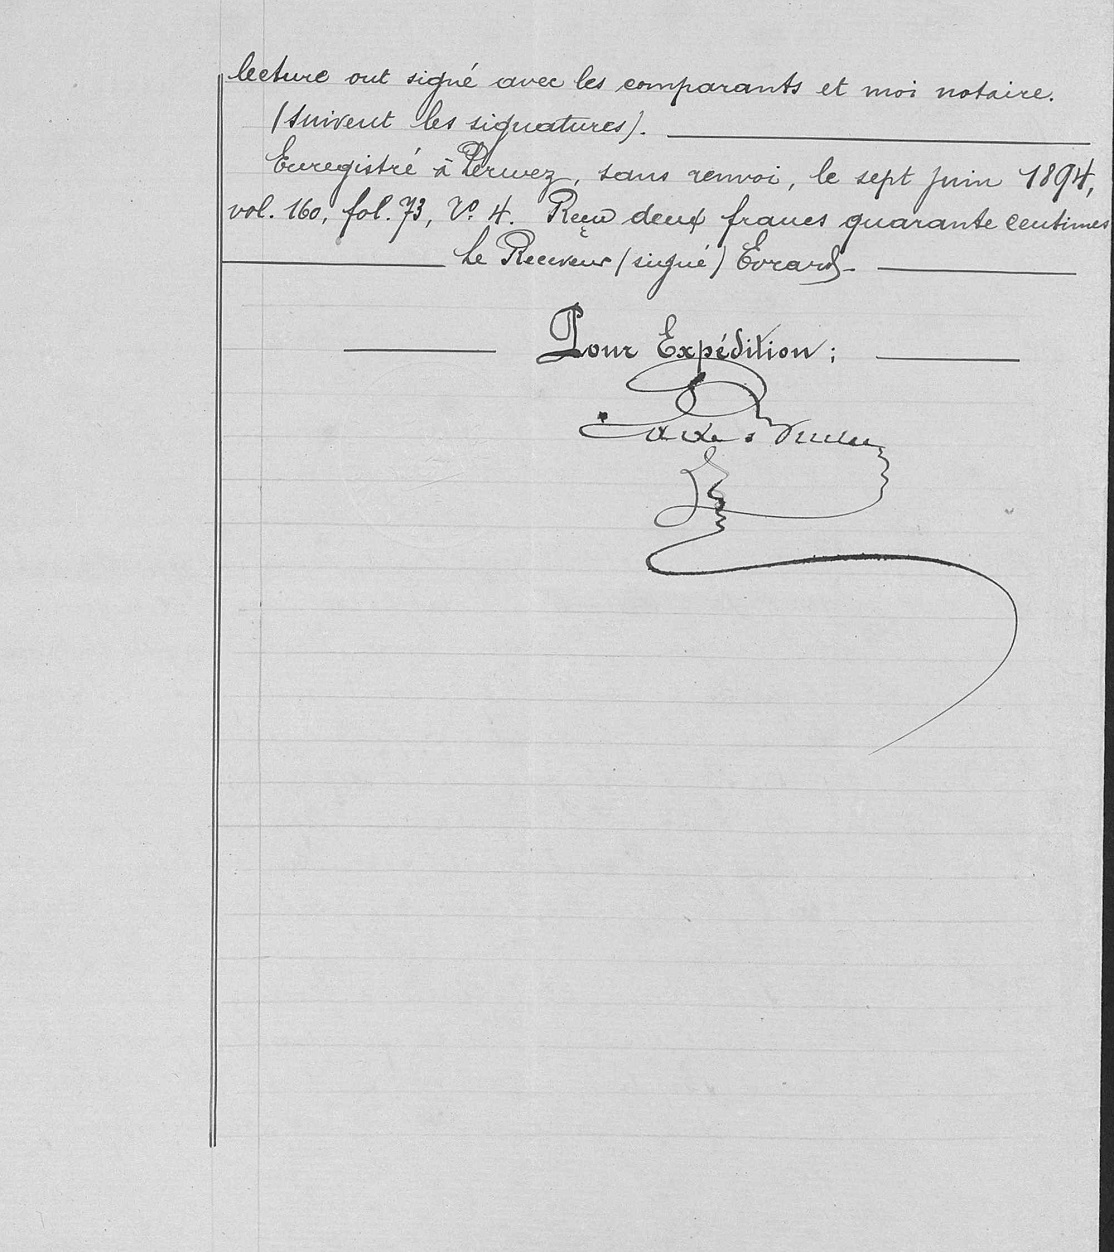 lecture ont signé avec les comparants et moi notaire.
(suivent les signatures).
Enregistré à Perwez, sans renvoi, le sept juin 1894,
vol. 160, fol. 73, V° 4. Reçu deux francs quarante centimes
Le Receveur (signé) Evrard.
Pour Expédition;